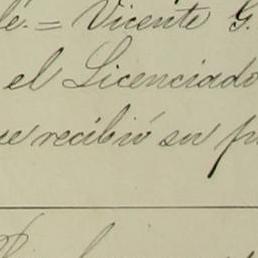 le. = Vicente G.
el Licenciado
ue recibió su p